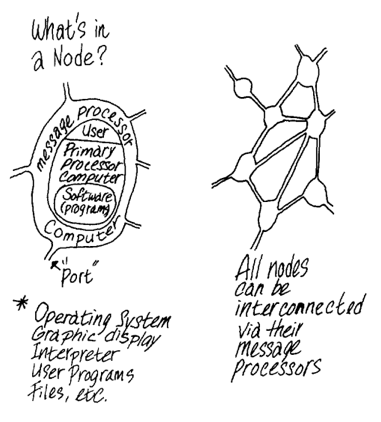 What's in
a Node?
message processor
User
Primary
Processor
Computer
Software
(programs)
Computer
"Port"
* Operating System
Graphic display
Interpreter
User Programs
Files, etc.
All nodes
can be
interconnected
via their
message
processors